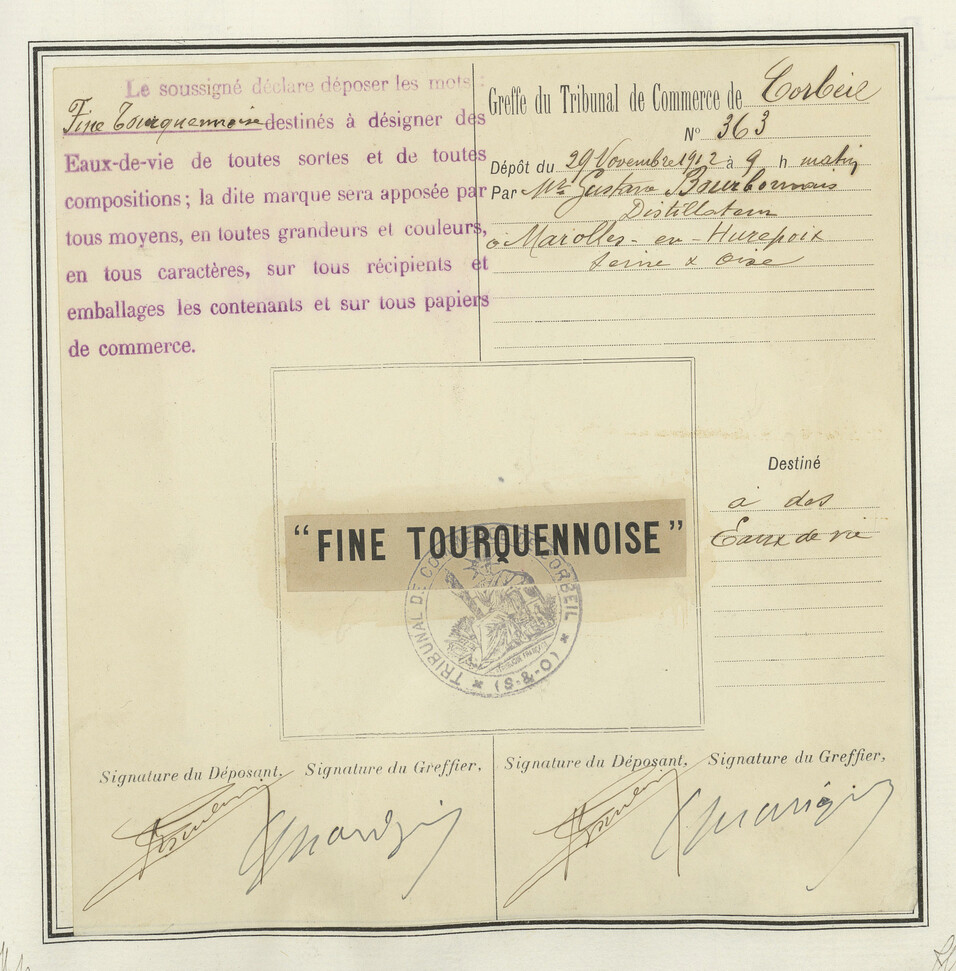 Le soussigné déclare déposer les mots :
Fine Tourquennoise destinés à désigner des
Eaux-de-vie de toutes sortes et de toutes
compositions ; la dite marque sera apposée par
tous moyens, en toutes grandeurs et couleurs,
en tous caractères, sur tous récipients et
emballages les contenants et sur tous papiers
de commerce.
Greffe du Tribunal de Commerce de Corbeil
N° 363
Dépôt du 29 Novembre 1912 à 9 h matin
Par Mr Gustave Bourbonnais
Distillateur
à Marolles-en-Hurepoix
Seine & Oise
Destiné
à des
Eaux de vie
"FINE TOURQUENNOISE"
TRIBUNAL DE COMMERCE DE CORBEIL
(S-&-O)
Signature du Déposant, Signature du Greffier,
Signature du Déposant, Signature du Greffier,